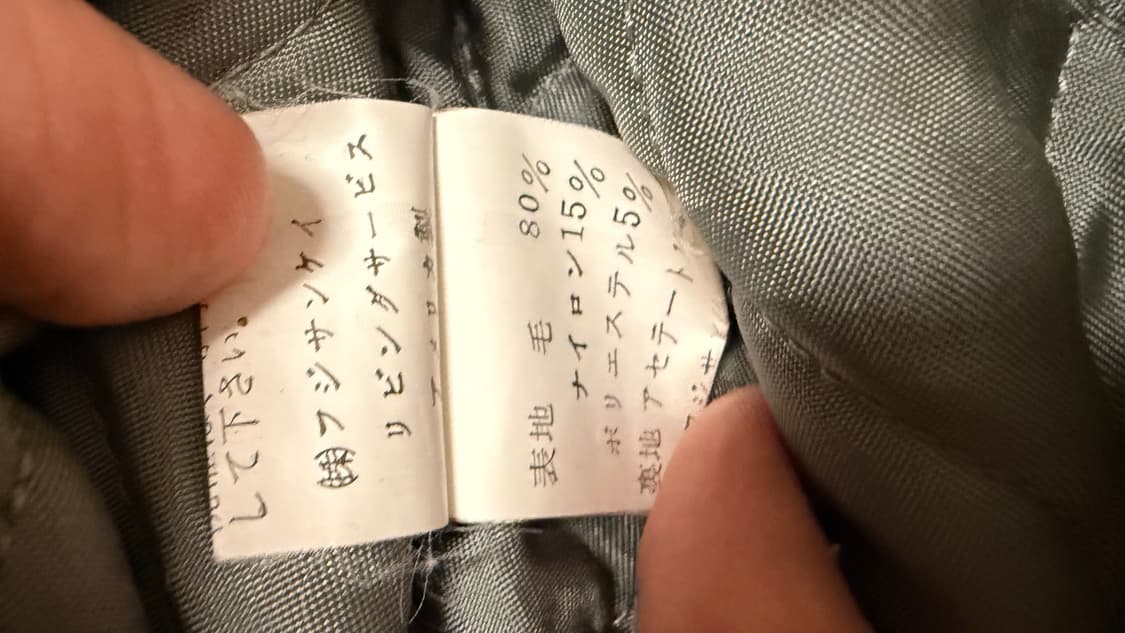 して下さい。
㈱フジサンケイ
リビングサービス
製
表地 毛 80%
ナイロン15%
ポリエステル5%
裏地 アセテート